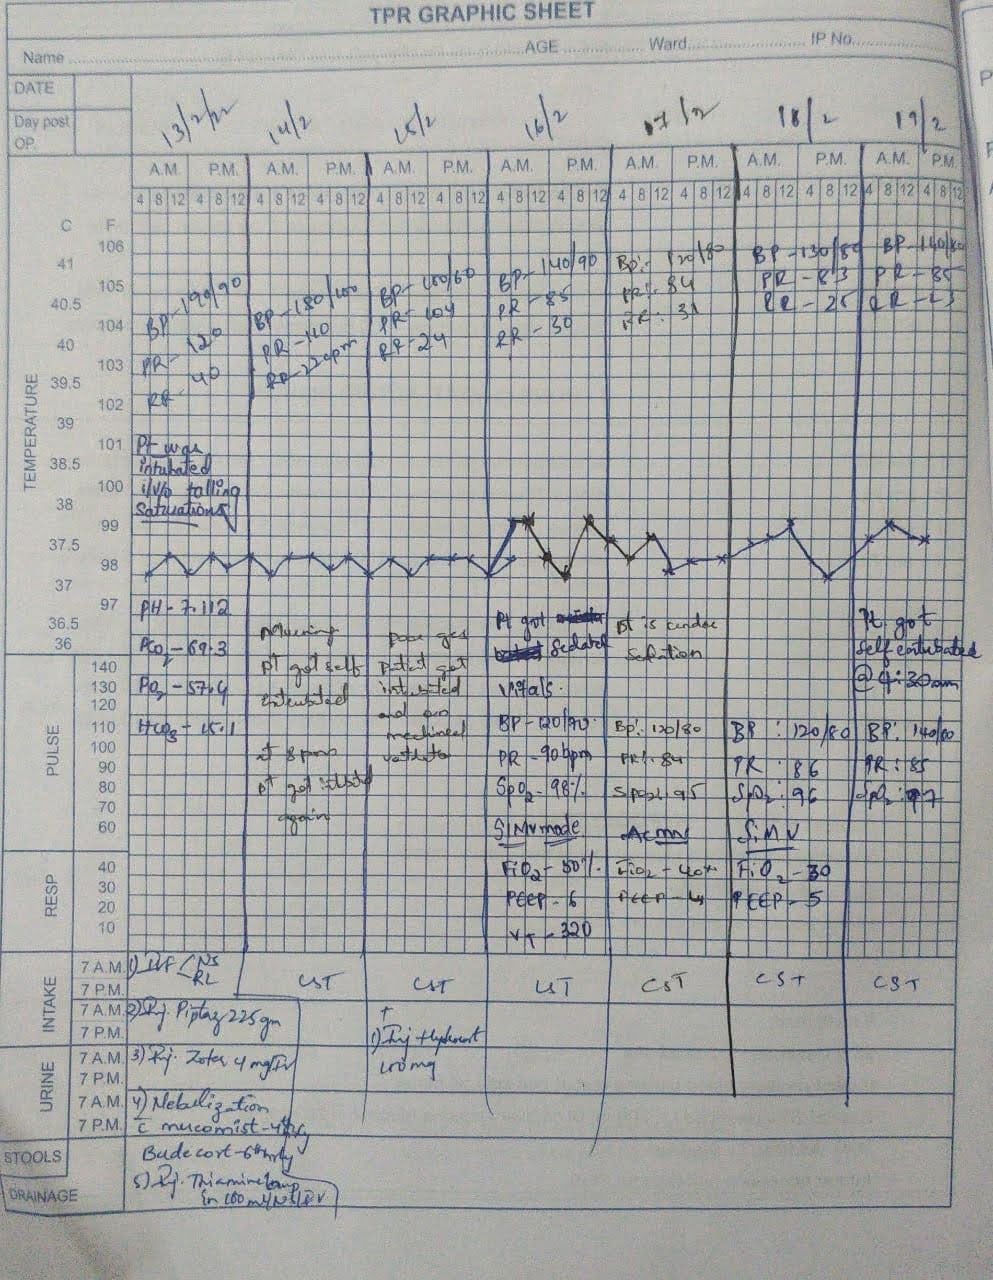 TPR GRAPHIC SHEET
Name AGE Ward IP No.
DATE
Day post OP.
13/2/22 14/2 15/2 16/2 17/2 18/2 19/2
A.M. P.M. A.M. P.M. A.M. P.M. A.M. P.M. A.M. P.M. A.M. P.M. A.M. P.M.
4 8 12 4 8 12 4 8 12 4 8 12 4 8 12 4 8 12 4 8 12 4 8 12 4 8 12 4 8 12 4 8 12 4 8 12 4 8 12 4 8 12
C F
TEMPERATURE
106
41
105
40.5
104
40
103
39.5
102
39
101
38.5
100
38
99
37.5
98
37
97
36.5
36
BP-190/90
PR-120
RR-40
Pt was
intubated
i/v/o falling
saturations
PH-7.112
PCO2-69.3
PO2-57.4
HCO3-15.1
BP-180/100
PR-110
RR-22cpm
pt got self
extubated
at 8pm
pt got
again
BP-100/60
PR-104
RR-24
intubated
and on
BP-140/90
PR-85
RR-30
Pt got
Sedated
Vitals.
BP-120/70.
PR-90bpm
SpO2-98%
SIMV mode
FiO2-50%.
PEEP-6
VT-320
Bp:- 120/80
PR:- 84
RR: 31
pt is under
sedation
Bp: 120/80
PR:- 84
Spo2: 95
Acmv
FiO2-40%
PEEP-4
BP-130/80
PR-83
RR-25
BP: 120/80
PR: 86
SpO2: 96
SIMV
FiO2-30
PEEP-5
BP-140/80
PR-85
RR-23
Pt. got
Self extubated
@ 4:30am
BP: 140/80
PR: 85
SpO2: 97
PULSE
140
130
120
110
100
90
80
70
60
RESP
40
30
20
10
INTAKE
7 A.M.
7 P.M.
7 A.M.
7 P.M.
URINE
7 A.M.
7 P.M.
7 A.M.
7 P.M.
STOOLS
DRAINAGE
1) IVF NS
RL
2) Inj. Piptaz 2.25gm
3) Inj. Zofer 4mg/IV
4) Nebulization
c mucomist-4th
Budecort-6th hrly
5) Inj. Thiamine 1amp
in 100ml/NS/IV
CST CST CST CST CST CST
+
1) Inj Hydrocort
100mg